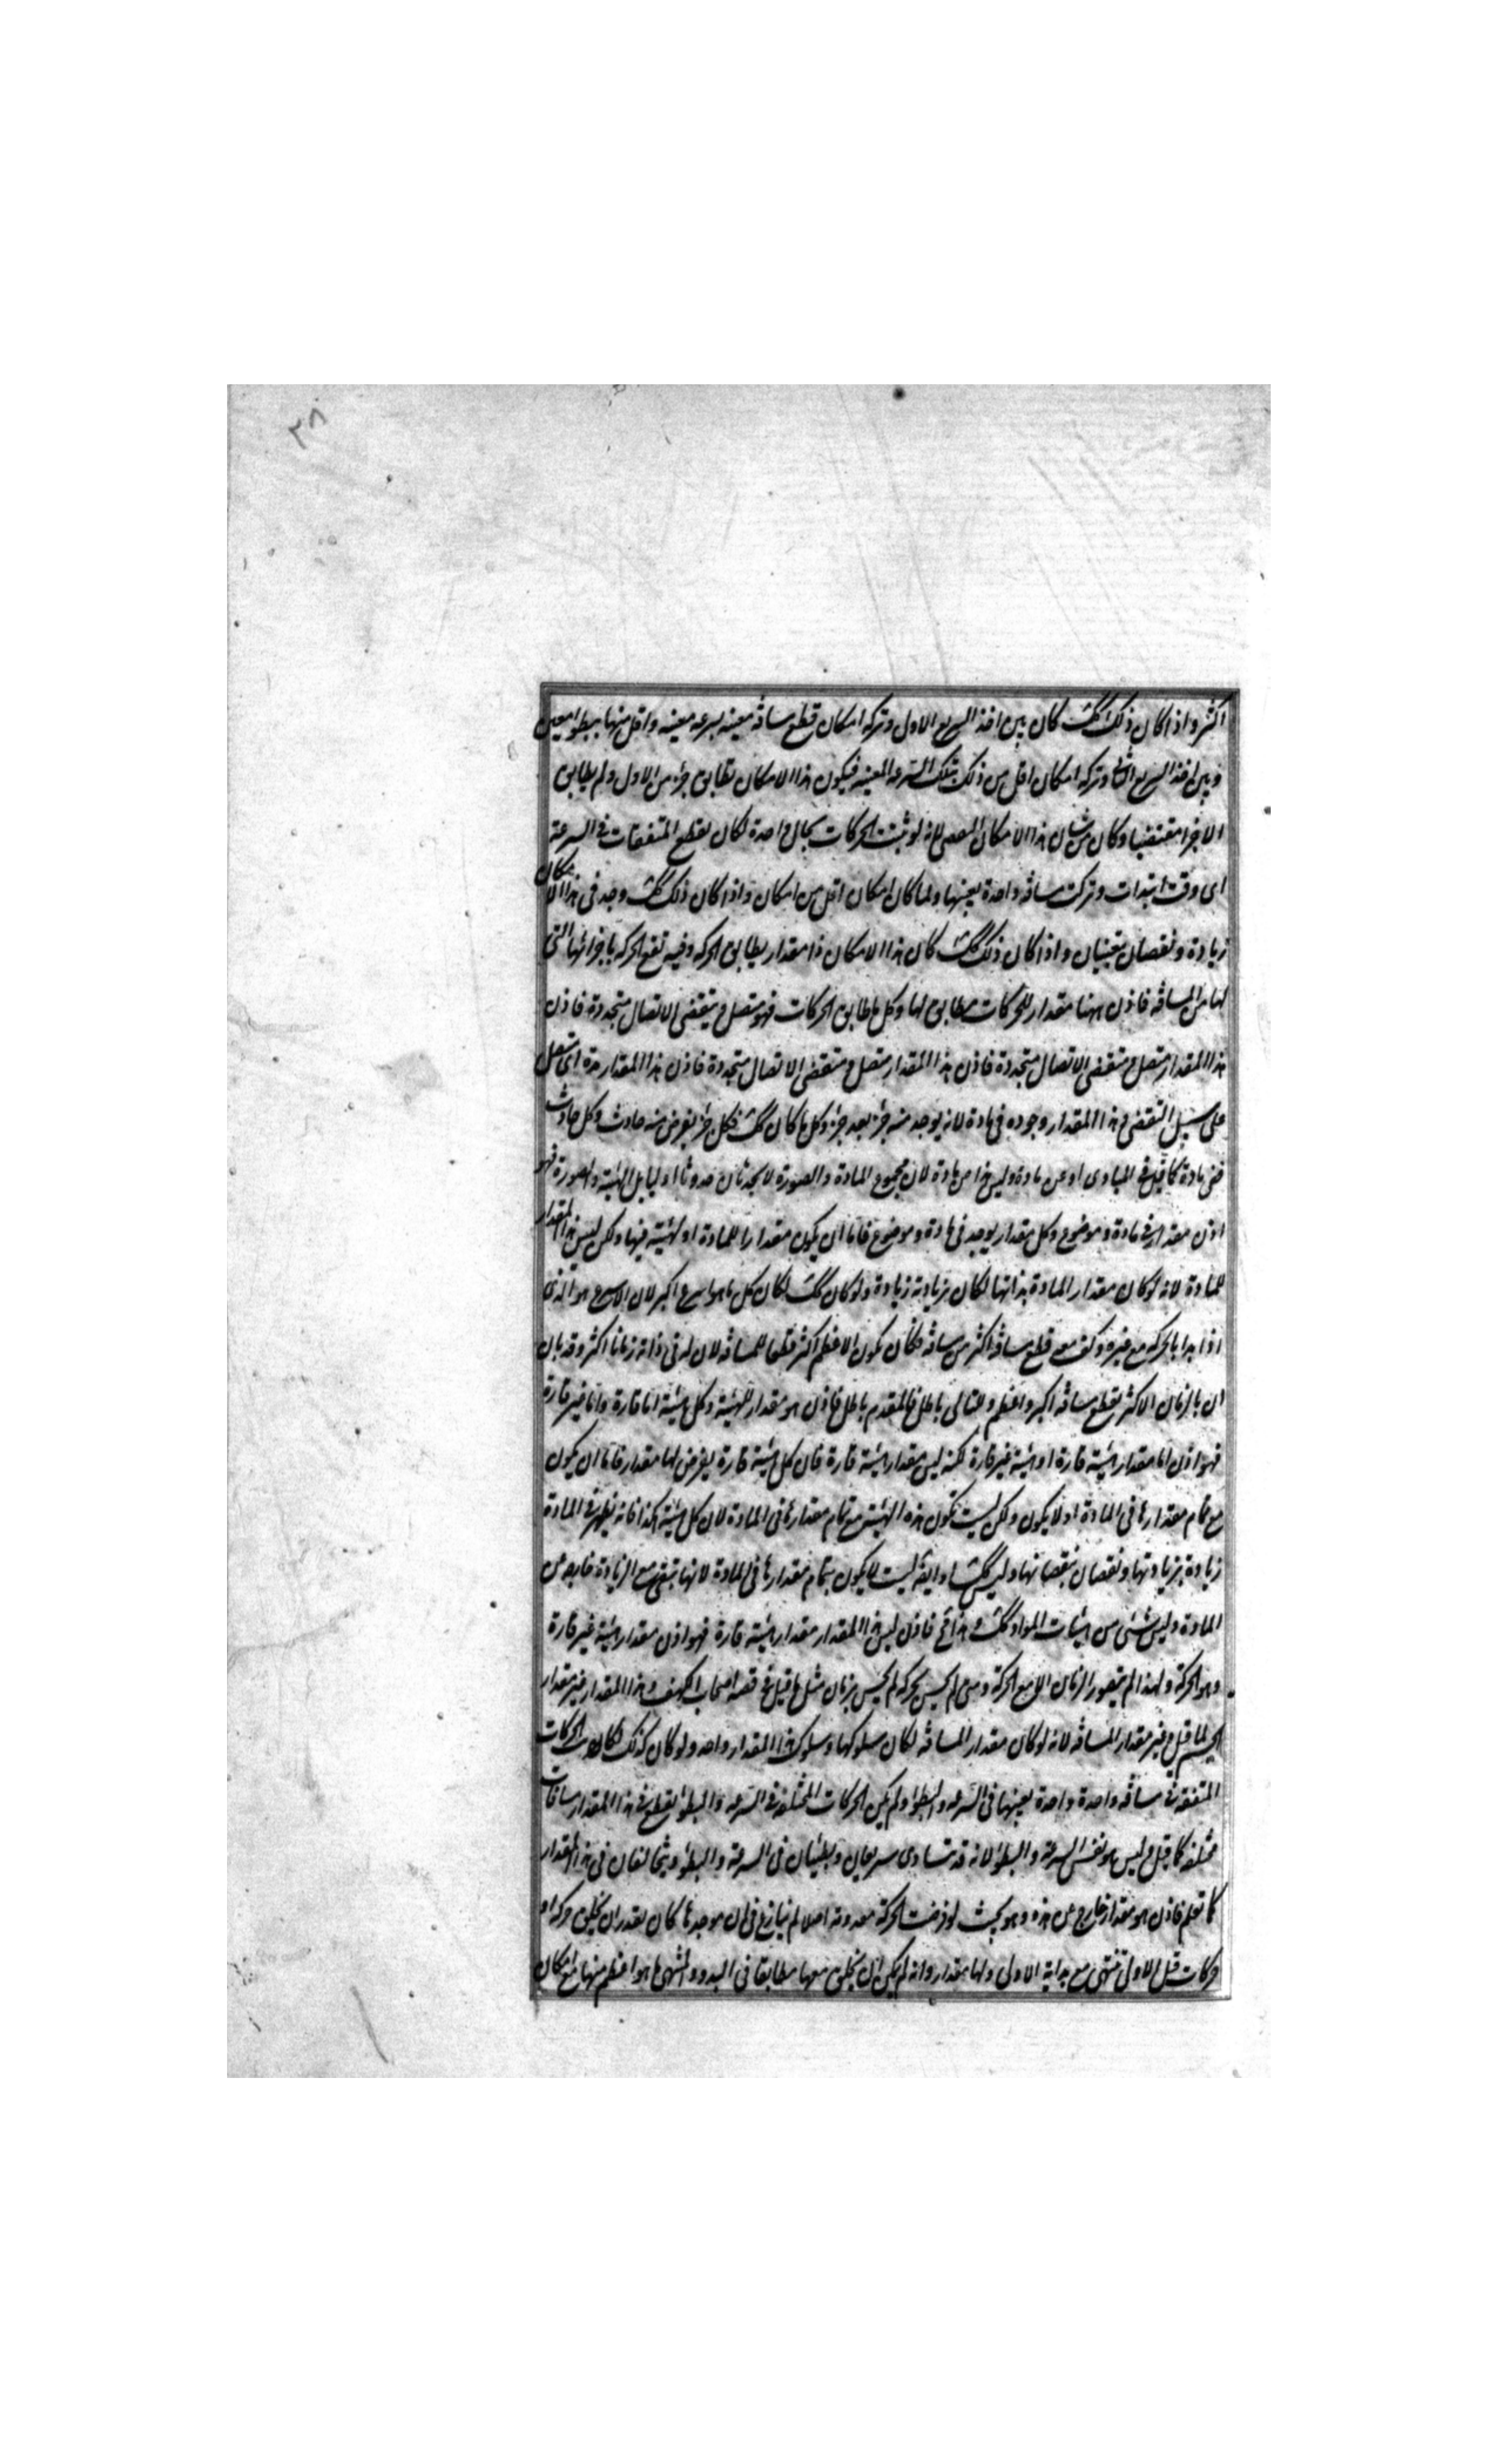 ٣٨
اكثر و اذا كان ذلك كك كان بين اخذ السريع الاول و تركه امكان قطع مسافه معينه بسرعه معينه و اقل منها ببطؤ معين
و بين اخذ السريع الثانى و تركه امكان اقل من ذلك بتلك السرعه المعينه فيكون هذا الامكان يطابق جزء من الاول و لم يطابق
الاخر متقضيا و كان من شان هذا الامكان التقضى لانه لو ثبت الحركات بحال واحدة لكان يقطع المتفقات فى السرعة
اى وقت ابتدات و تركت مسافه واحدة بعينها و لما كان امكان اقل من امكان و اذا كان ذلك كك وجد فى هذا الامكان
زيادة و نقصان يتعينان و اذا كان ذلك كك كان هذا الامكان ذا مقدار يطابق الحركه و فيه تقع الحركه باجزائها التى
لها من المسافه فاذن ههنا مقدار للحركات مطابق لها و كل ما طابق الحركات فهو متصل و يتقضى الاتصال متجددة فاذن
هذا المقدار متصل و متقضى الاتصال متجددة فاذن هذا المقدار متصل و متقضى الاتصال متجددة فاذن هذا المقدار مدة اى متصل
على سبيل التقضى و هذا المقدار وجوده فى مادة لانه يوجد منه جزء بعد جزء و كل ما كان كك فكل جزء يفرض منه حادث و كل حادث
ففى مادة كما قيل فى المبادى او عن مادة و ليس هذا من مادة لان مجموع المادة و الصورة لا يحدثان حدوثا اوليا بل الهيئة و الصورة فهو
اذن مقدار فى مادة و موضوع و كل مقدار يوجد فى مادة و موضوع فاما ان يكون مقدارا للمادة او لهيئة فيها و لكن ليس هذا المقدار
للمادة لانه لو كان مقدار المادة بذاتها لكان بزيادته زيادة و لو كان كك لكان كل ما هو اسرع اكبر لان الاسرع هو الذى
اذا بدا بالحركه مع غيره و كف معه قطع مسافة اكثر من مسافه فكان يكون الاعظم اكثر قطعا للمسافه لان له فى ذاته زمانا اكثر و قد بان
ان بالزمان الاكثر يقطع مسافه اكبر و اعظم و التالى باطل فالمقدم باطل فاذن هو مقدار للهيئة و كل هيئة اما قارة و اما غير قارة
فهو اذن اما مقدار هيئة قارة او هيئة غير قارة لكنه ليس مقدار هيئة قارة فان كل هيئة قارة يفرض لها مقدار فاما ان يكون
مع تمام مقدارها فى المادة او لا يكون و لكن ليست تكون هذه الهيئة مع تمام مقدارها فى المادة لان كل هيئة هكذا فانه يظهر فى المادة
زيادة بزيادتها و نقصان بنقصانها و ليس كك هذا و ايضا ليست لا يكون بتمام مقدارها فى المادة لانها تبقى مع الزيادة خارجه عن
المادة و ليس شئى من هيئات المواد كك و هذا مح فاذن ليس هذا المقدار مقدار هيئة قارة فهو اذن مقدار هيئة غير قارة
و هو الحركة و لهذا لم يتصور الزمان الا مع الحركة و متى لم يحس بحركه لم يحس بزمان مثل ما قيل فى قصة اصحاب الكهف و هذا المقدار غير مقدار
الجسم لما قيل و غير مقدار المسافه لانه لو كان مقدار للمسافه لكان سلوكها و سلوك هذا المقدار واحد و لو كان كذلك لكانت الحركات
المتفقة فى مسافه واحدة واحدة بعينها فى السرعه و البطؤ و لم يكن الحركات المختلفة فى السرعه و البطؤ يقطع فى هذا المقدار مسافات
مختلفه كما قيل و ليس هو نفس السرعة و البطؤ لانه قد تساوى سريعان و بطيئان فى السرعة و البطؤ و يتخالفان فى هذا المقدار
كما تعلم فاذن هو مقدار خارج عن هذه و هو بحيث لو فرضت الحركة معدومه اصلا لم ينازع فى ان موجدها كان يقدر ان يخلق حركه او
حركات قبل الاولى تنتهى مع بداية الاولى و لها مقدار و انه لم يكن ان يخلق معها مطابقا فى البدو و المنتهى ما هو اعظم منها مع امكان